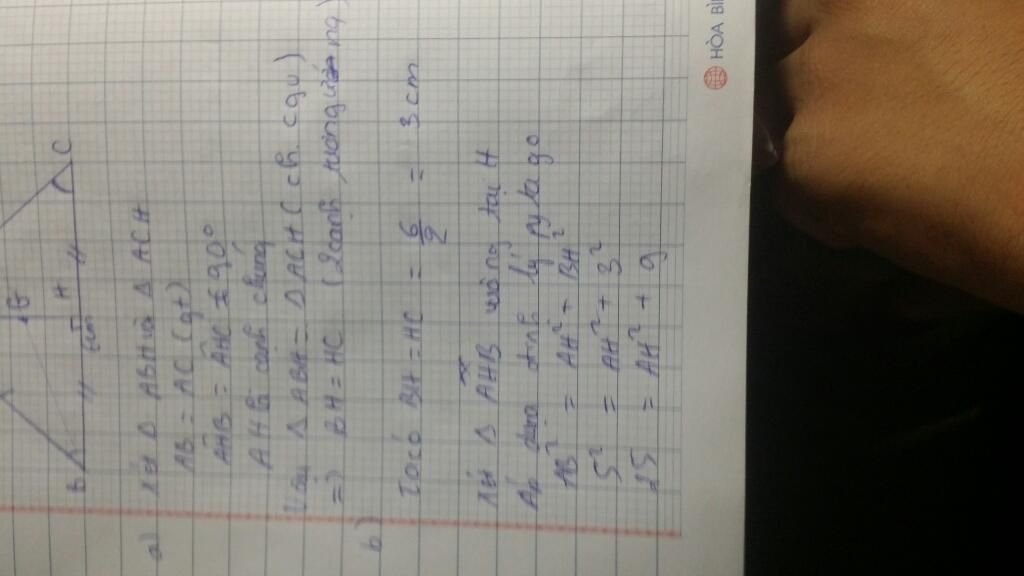 G
B H C
6cm
a) Xét Δ ABH và Δ ACH
AB = AC (gt)
AHB = AHC = 90°
AH là cạnh chung
Vậy Δ ABH = Δ ACH (ch. cgv)
=) BH = HC (2 cạnh tương ứng)
b) Ta có BH = HC = 6/2 = 3 cm
Xét Δ AHB vuông tại H
Áp dụng định lý pytago
AB² = AH² + BH²
5² = AH² + 3²
25 = AH² + 9
HÒA BÌ